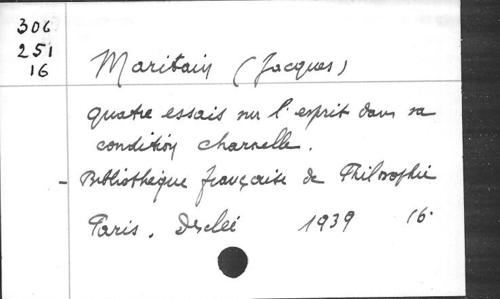 306
251
16
Maritain (Jacques)
quatre essais sur l'esprit dans sa
condition charnelle.
- Bibliothèque française de Philosophie
Paris. Desclée 1939 16.